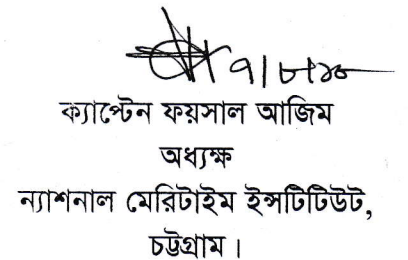 ৭|৮|১৮
ক্যাপ্টেন ফয়সাল আজিম
অধ্যক্ষ
ন্যাশনাল মেরিটাইম ইন্সটিটিউট,
চট্টগ্রাম।